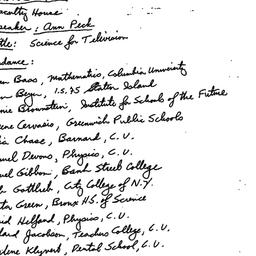 aculty House
peaker : Ann Peck
tle: Science for Television
dance :
Bass, Mathematics, Columbia University
Begun, I.S. 75 Staten Island
nie Brownstein, Institute for Schools of the Future
ene Cervasio, Greenwich Public Schools
ia Chase, Barnard, C.U.
uel Devons, Physics, C.U.
uel Gibbon, Bank Street College
h Gottlieb, City College of N.Y.
ta Green, Bronx HS. of Science
id Helfand, Physics, C.U.
lard Jacobson, Teachers College, C.U.
rlene Klyvert, Dental School, C.U.